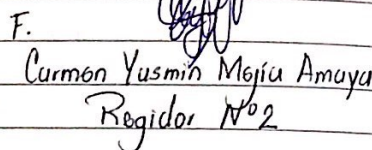 F.
Carmen Yusmin Mejía Amaya
Regidor Nº2